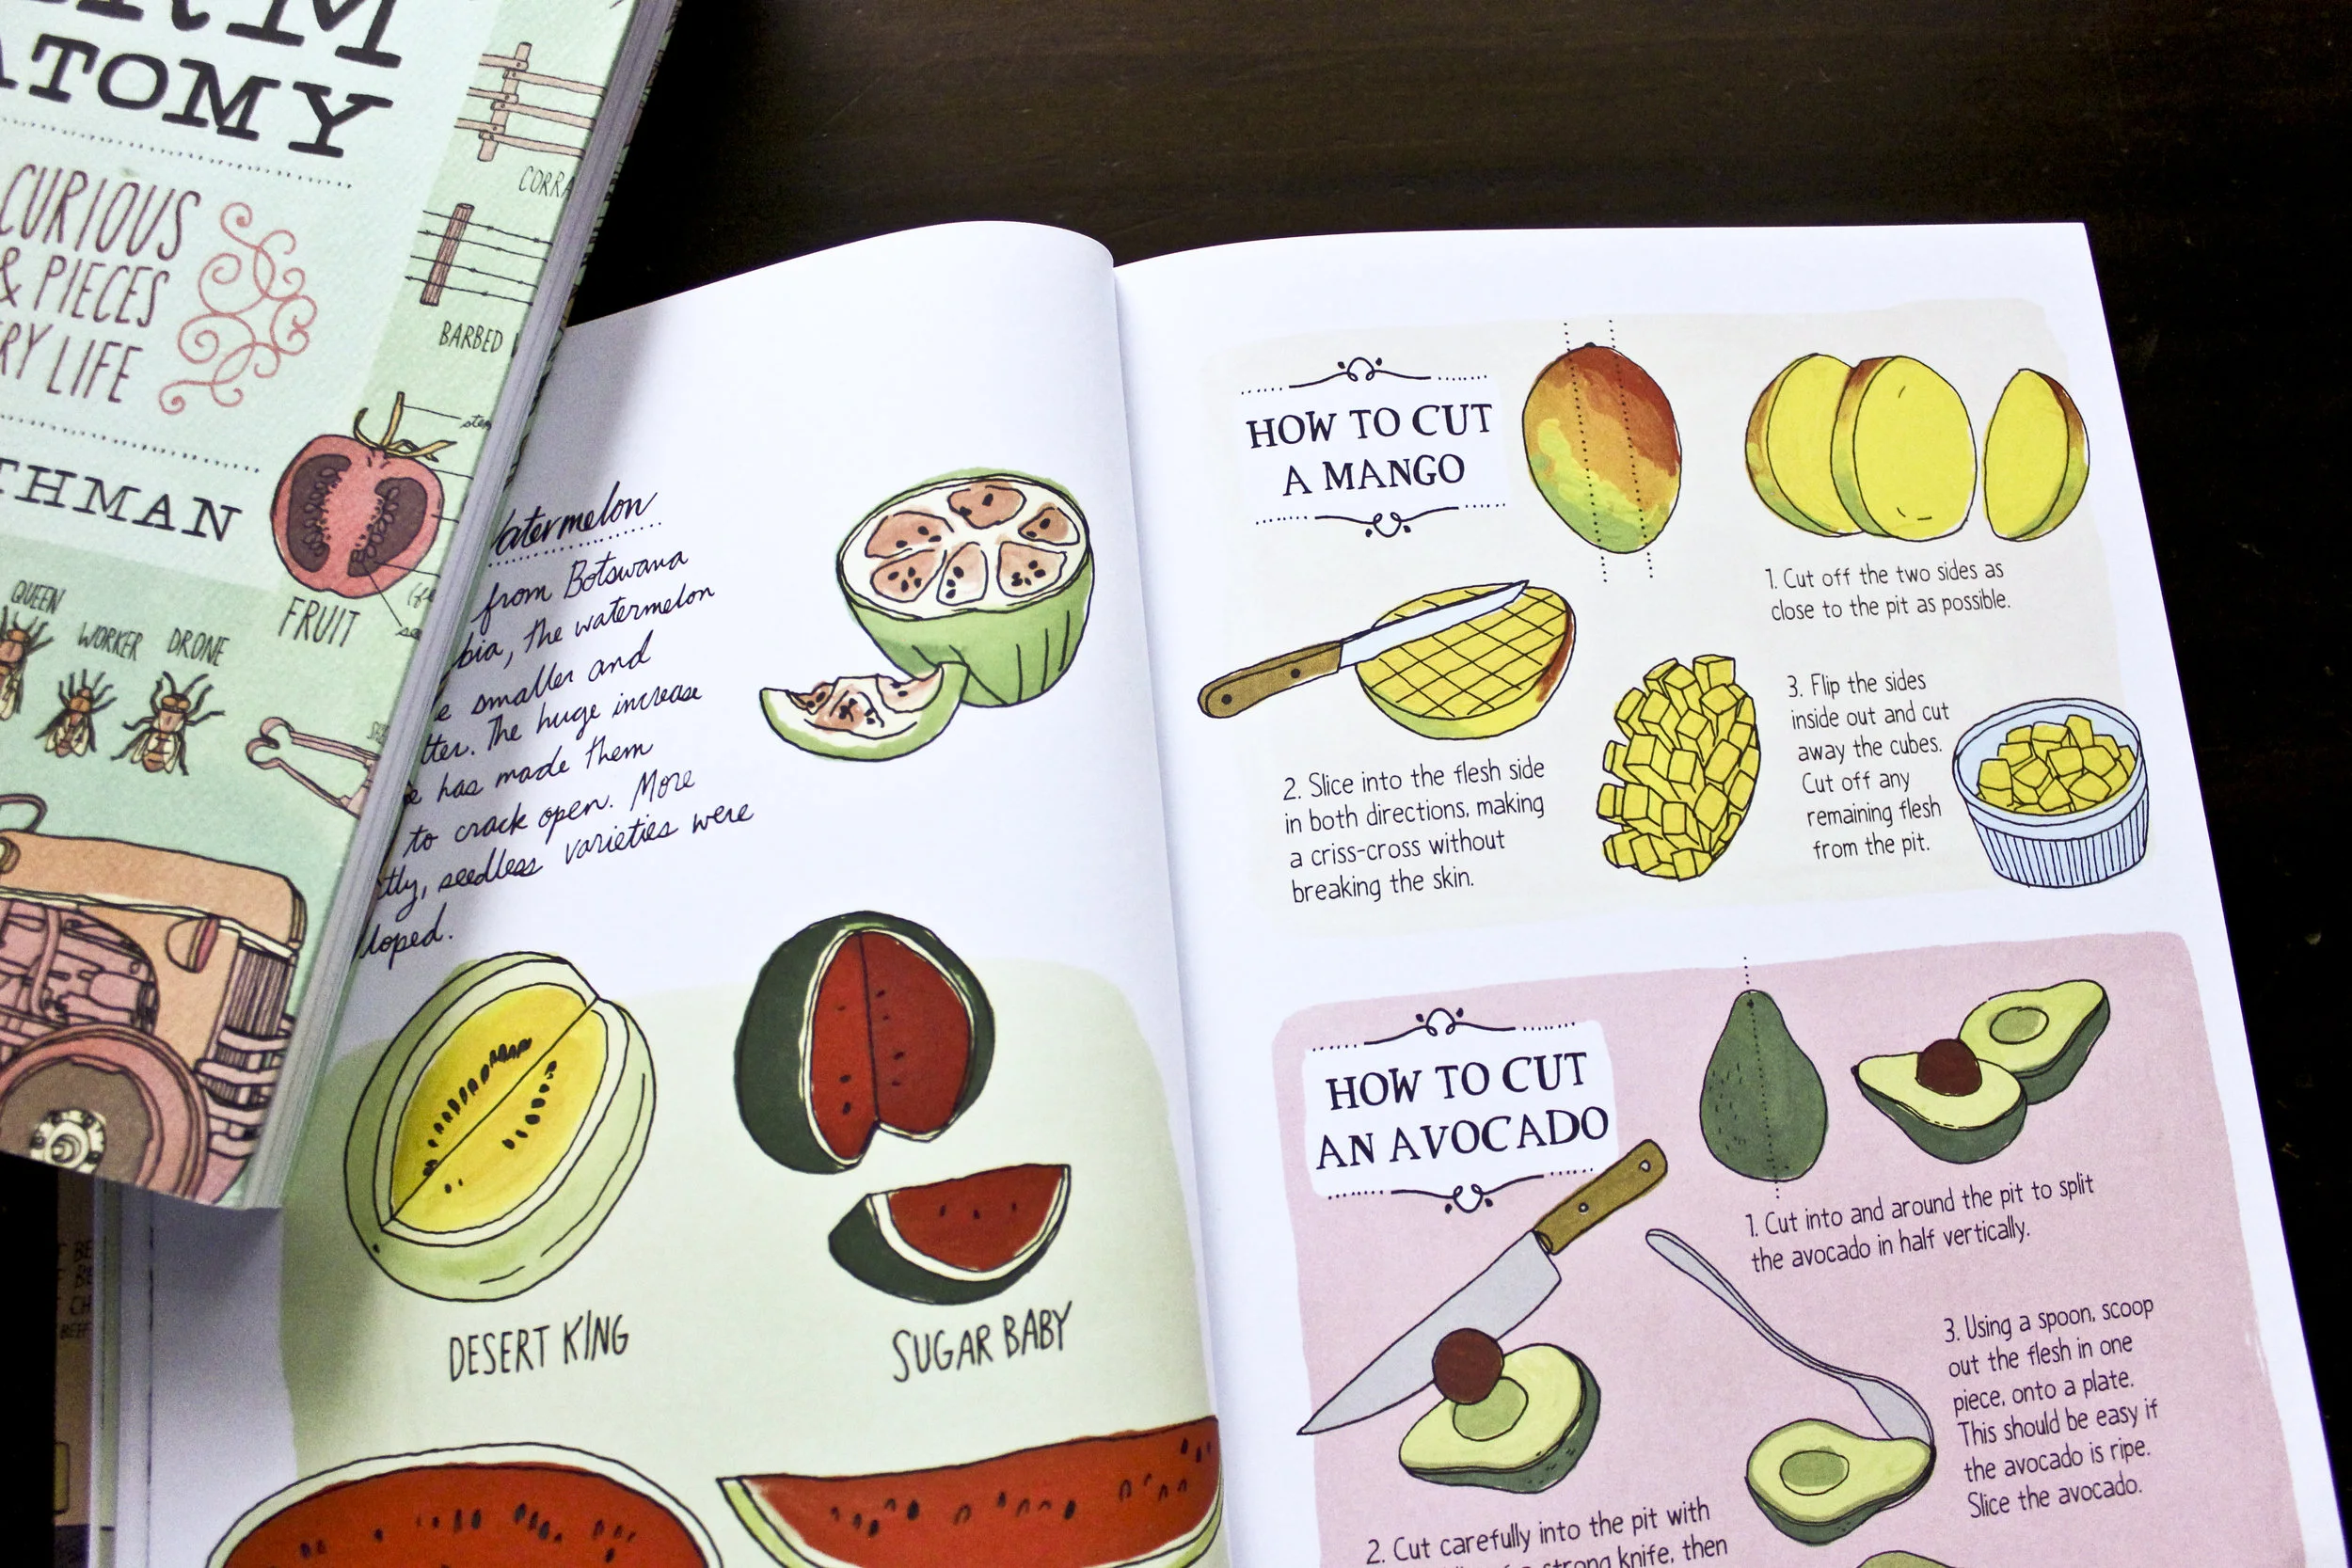 ATOMY
CURIOUS
& PIECES
LIFE
CORRA
BARBED
FRUIT
QUEEN
WORKER DRONE
from Botswana
the watermelon
smaller and
The huge increase
has made them
to crack open. More
seedless varieties were
DESERT KING
SUGAR BABY
HOW TO CUT
A MANGO
1. Cut off the two sides as
close to the pit as possible.
2. Slice into the flesh side
in both directions, making
a criss-cross without
breaking the skin.
3. Flip the sides
inside out and cut
away the cubes.
Cut off any
remaining flesh
from the pit.
HOW TO CUT
AN AVOCADO
1. Cut into and around the pit to split
the avocado in half vertically.
2. Cut carefully into the pit with
strong knife, then
3. Using a spoon, scoop
out the flesh in one
piece, onto a plate.
This should be easy if
the avocado is ripe.
Slice the avocado.